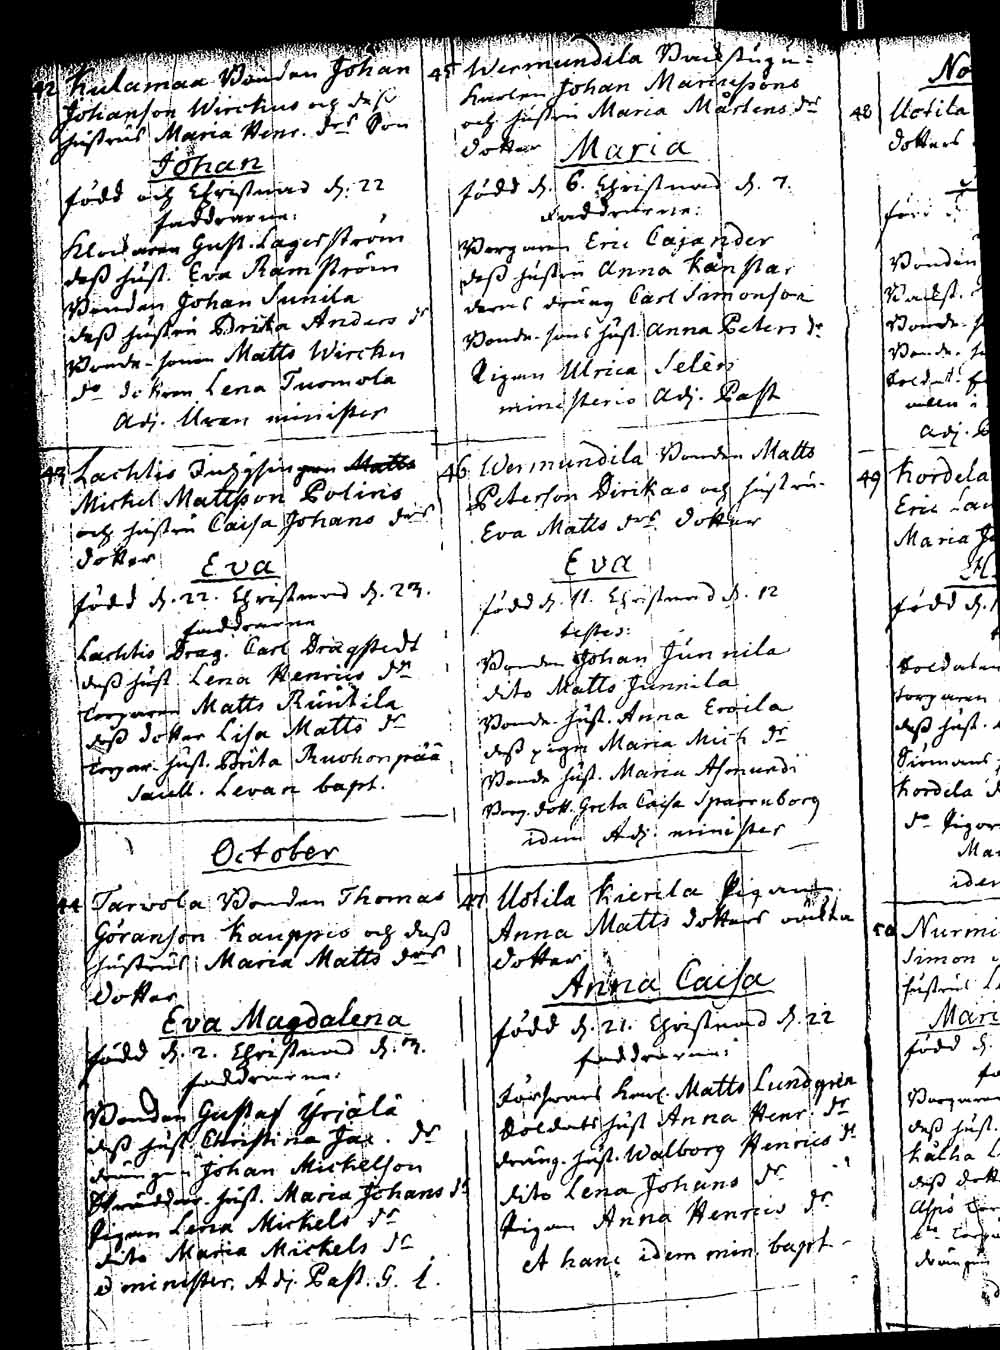 42 Kulamaa Bonden Johan
Johanson Wirckus och dess
hustrus Maria Henr. drs Son
Johan
född och Christnad d. 22
faddrarne:
Klockaren Gust. Lagerström
dess hust. Eva Ramström
Bonden Johan Sunila
dess hustru Brita Anders dr
Bonde-sonen Matts Wircku
do dottren Lena Tuomola
Adj. Uvan minister
43 Lachtis Inhysingen Matts
Michel Mattsson Poliris
och hustru Caisa Johans drs
dotter
Eva
född d. 22. Christnad d. 23.
faddrarne
Lachtis Drag. Carl Dragstedt
dess hust Lena Henrics dr
torparen Matts Runtila
dess dotter Lisa Matts dr
torpar. hust. Brita Ruohonpää
Levan bapt.
October
44 Tarwola Bonden Thomas
Göranson Kauppis och dess
hustrus Maria Matts drs
dotter
Eva Magdalena
född d. 2. Christnad d. 3.
faddrarne:
Bonden Gustaf Yrjälä
dess hust Christina Jac. dr
drängen Johan Michelson
Skräddar. hust. Maria Johans dr
Pigan Lena Michels dr
dito Maria Michels dr
minister. Adj. Past. G. L.
45 Wermundila
Karlen Johan Marcussons
och hustru Maria Mårtens drs
dotter Maria
född d. 6. Christnad d. 7.
Faddrarne:
Borgaren Eric Cajander
dess hustru Anna Känstar
deras dräng Carl Simonson
Bonde-sons hust. Anna Peters dr
Pigan Ulrica Selén
ministerio Adj. Past
46 Wermundila Bonden Matts
Peterson Dirikas och hustru
Eva Matts drs dotter
Eva
född d. 11. Christnad d. 12
testes:
Bonden Johan Junnila
dito Matts Junnila
Bonde. hust. Anna Eroila
dess pigan Maria Mich dr
Bonde hust. Maria Asmundi
Borg. dott. Greta Caisa Sparrnborg
idem Adj. minister
47 Uotila Kierila Pigan
Anna Matts dotters oäkta
dotter
Anna Caisa
född d. 21. Christnad d. 22
faddrarne:
Matts Lundgrén
Soldats hust Anna Henr. dr
dräng. hust. Walborg Henrics dr
dito Lena Johans dr
Pigan Anna Henrics dr
et hanc idem min. bapt
No
48 Uotila
dotters
Bonden
49 Kordela
Eric
Maria
född d.
Soldaten
torparen
dess hust.
Kordela
do Pigor
idem
50 Nurmi
Simon
hustrus
Mari
född d.
Borgaren
dess hust.
dess dott